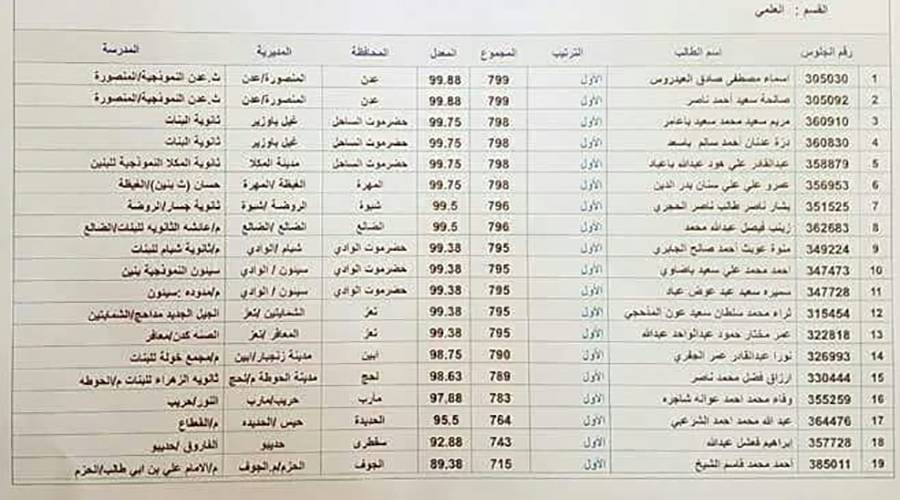 القسم : العلمي
رقم الجلوس اسم الطالب الترتيب المجموع المعدل المحافظة المديرية المدرسة
1 305030 اسماء مصطفى صادق العيدروس الأول 799 99.88 عدن المنصورة/عدن ث.عدن النموذجية/المنصورة
2 305092 صالحة سعيد أحمد ناصر الأول 799 99.88 عدن المنصورة/عدن ث.عدن النموذجية/المنصورة
3 360910 مريم سعيد محمد سعيد باعامر الأول 798 99.75 حضرموت الساحل غيل باوزير ثانوية البنات
4 360830 درة عدنان أحمد سالم باسعد الأول 798 99.75 حضرموت الساحل غيل باوزير ثانوية البنات
5 358879 عبدالقادر علي هود عبدالله باعباد الأول 798 99.75 حضرموت الساحل مدينة المكلا ثانوية المكلا النموذجية للبنين
6 356953 عمرو علي علي سنان بدر الدين الأول 798 99.75 المهرة الغيظة /المهرة حسان (ث بنين)/الغيظة
7 351525 بشار ناصر طالب ناصر الحجري الأول 796 99.5 شبوة الروضة /شبوة ثانوية جسار/الروضة
8 362683 زينب فيصل عبدالله محمد الأول 796 99.5 الضالع الضالع /الضالع م/عائشه الثانويه للبنات/الضالع
9 349224 منوة عويث أحمد صالح الجابري الأول 795 99.38 حضرموت الوادي شبام /الوادي م/ثانوية شبام للبنات
10 347473 احمد محمد علي سعيد باضاوي الأول 795 99.38 حضرموت الوادي سيئون / الوادي سيئون النموذجية بنين
11 347728 سميره سعيد عبد عوض عباد الأول 795 99.38 حضرموت الوادي سيئون / الوادي م/مدوده :سيئون
12 315454 ثراء محمد سلطان سعيد عون المذحجي الأول 795 99.38 تعز الشمايتين /تعز الجيل الجديد مداحج/الشمايتين
13 322818 عمر مختار حمود عبدالواحد عبدالله الأول 795 99.38 تعز المعافر /تعز الصنه كدن/معافر
14 326993 نورا عبدالقادر عمر الجفري الأول 790 98.75 ابين مدينة زنجبار/ابين م/مجمع خولة للبنات
15 330444 ارزاق فضل محمد ناصر الأول 789 98.63 لحج مدينة الحوطة م/لحج ثانويه الزهراء للبنات م/الحوطه
16 355259 وفاء محمد احمد عوانه شاجره الأول 783 97.88 مأرب حريب/مأرب النور/حريب
17 364476 عبد الله محمد احمد الشرعبي الأول 764 95.5 الحديدة حيس /الحديده م/القطاع
18 357728 إبراهيم فعشل عبدالله الأول 743 92.88 سقطرى حديبو الفاروق /حديبو
19 385011 أحمد محمد قاسم الشيخ الأول 715 89.38 الجوف الحزم/م.الجوف م/الامام علي بن ابي طالب/الحزم